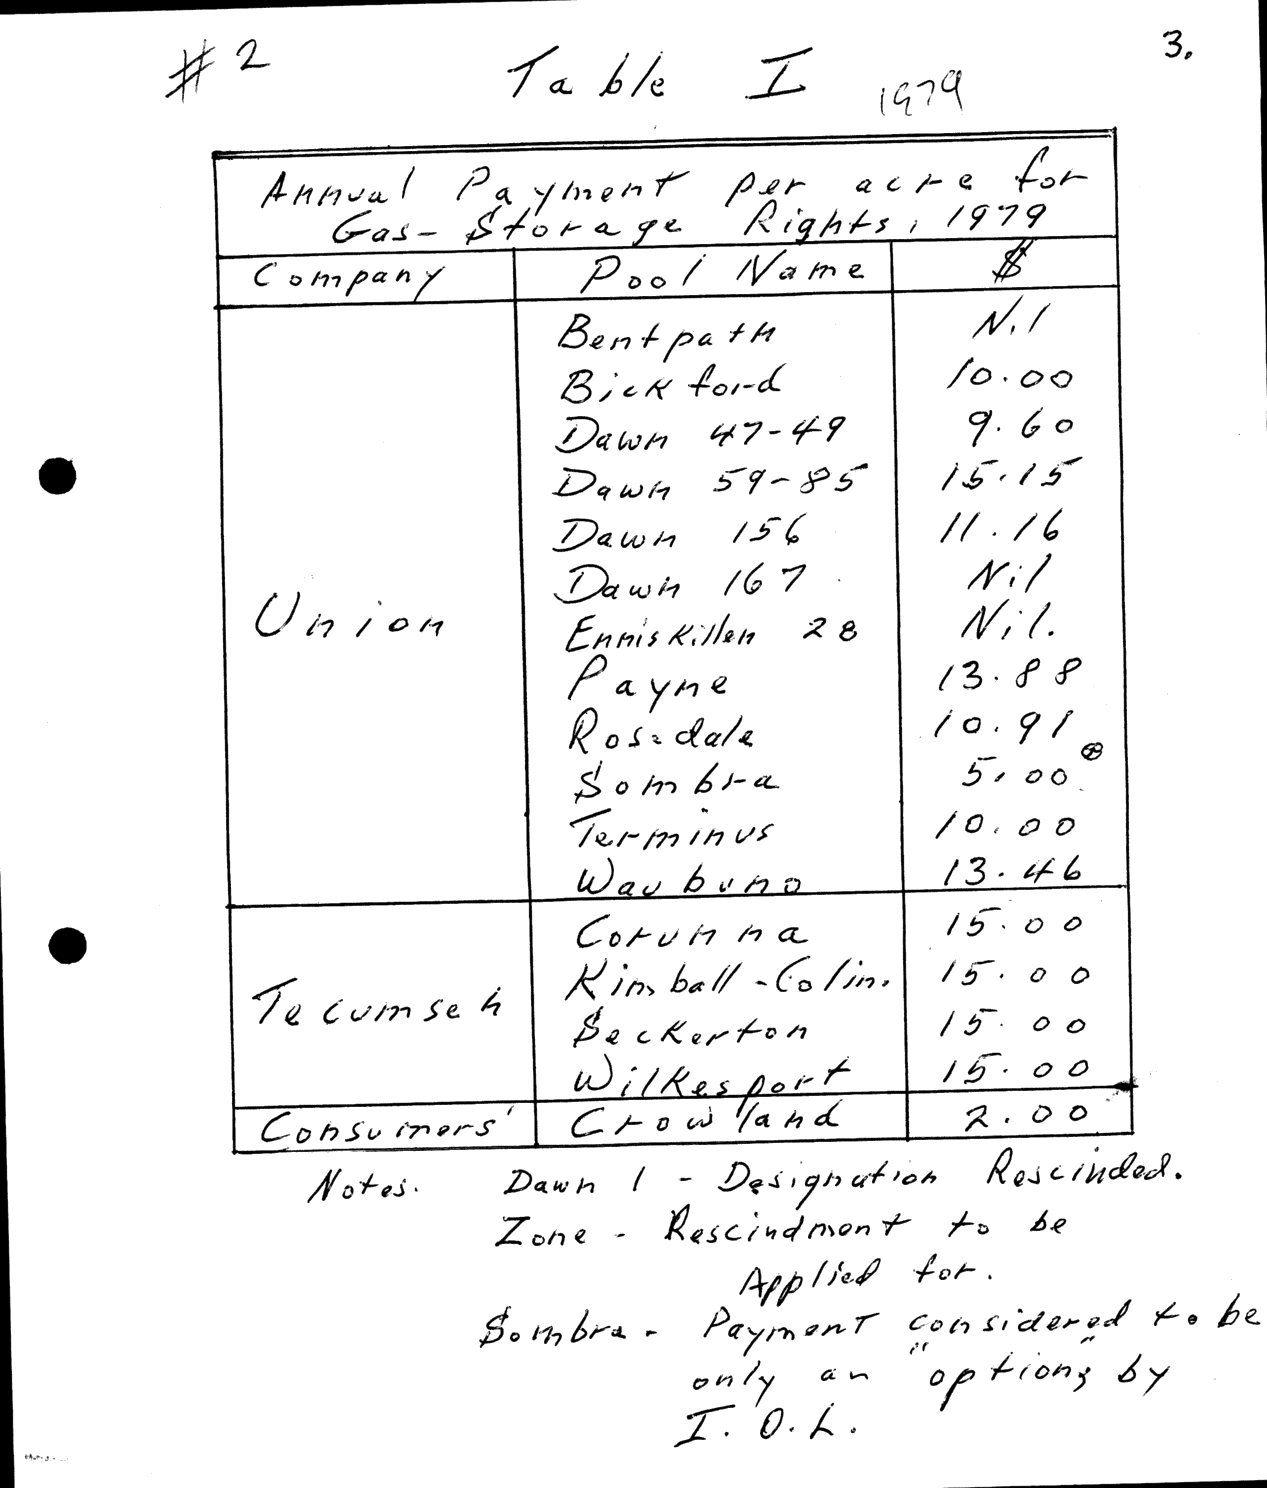 #2 Table I 1979 3.
Annual Payment per acre for
Gas-Storage Rights, 1979
Company Pool Name $
Bentpath Nil
Bickford 10.00
Dawn 47-49 9.60
Dawn 59-85 15.15
Dawn 156 11.16
Dawn 167 Nil
Union Enniskillen 28 Nil.
Payne 13.88
Rosedale 10.91
Sombra 5.00 ⊕
Terminus 10.00
Waubuno 13.46
Corunna 15.00
Kimball-Colin. 15.00
Tecumseh Seckerton 15.00
Wilkesport 15.00
Consumers' Crowland 2.00
Notes. Dawn 1 - Designation Rescinded.
Zone - Rescindment to be
Applied for.
Sombra - Payment considered to be
only an "option" by
I.O.L.